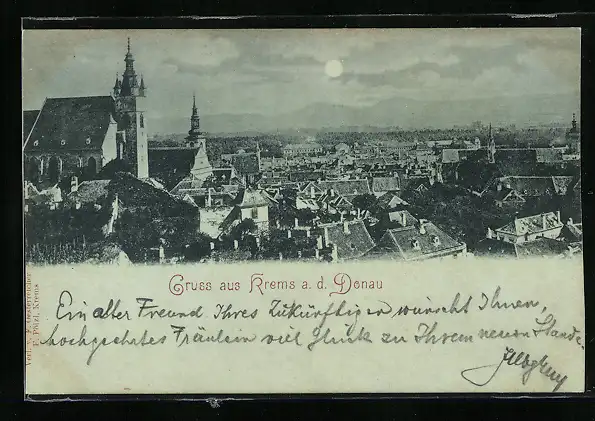 Gruss aus Krems a. d. Donau
Ein alter Freund Ihres Zukünftigen wünscht Ihnen,
hochgeehrtes Fräulein viel Glück zu Ihrem neuen Stande.
Verl. v. F. Oesterreicher
F. Pölzl, Krems